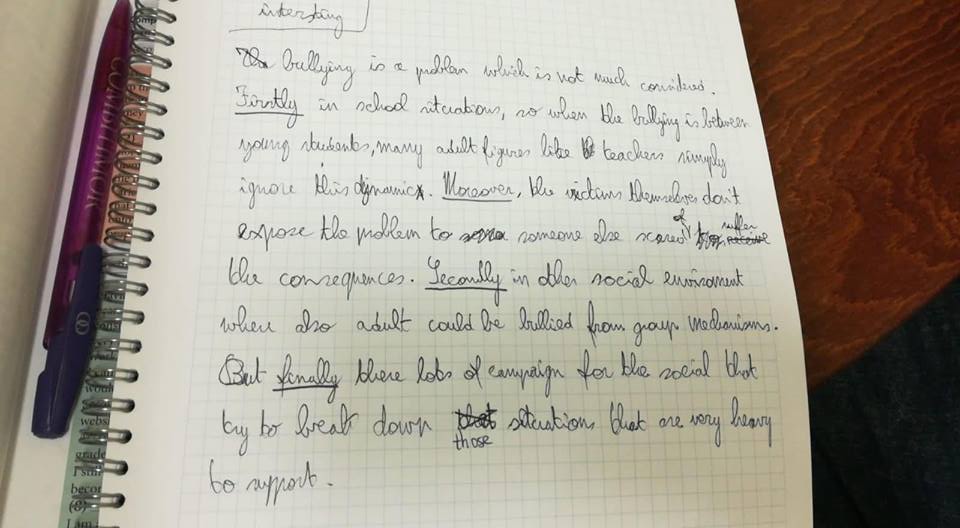 intersting
bullying is a problem which is not much considered.
Firstly in school situations, so when the bullying is between
young students, many adult figures like teachers simply
ignore this dynamic. Moreover, the victims themselves don't
expose the problem to someone else scared of suffer
the consequences. Secondly in other social enviroment
when also adult could be bullied from group mechanisms.
But finally there lots of campaign for the social that
try to break down those situations that are very heavy
to support.
websi
grade
I still
becor
(8)
I am